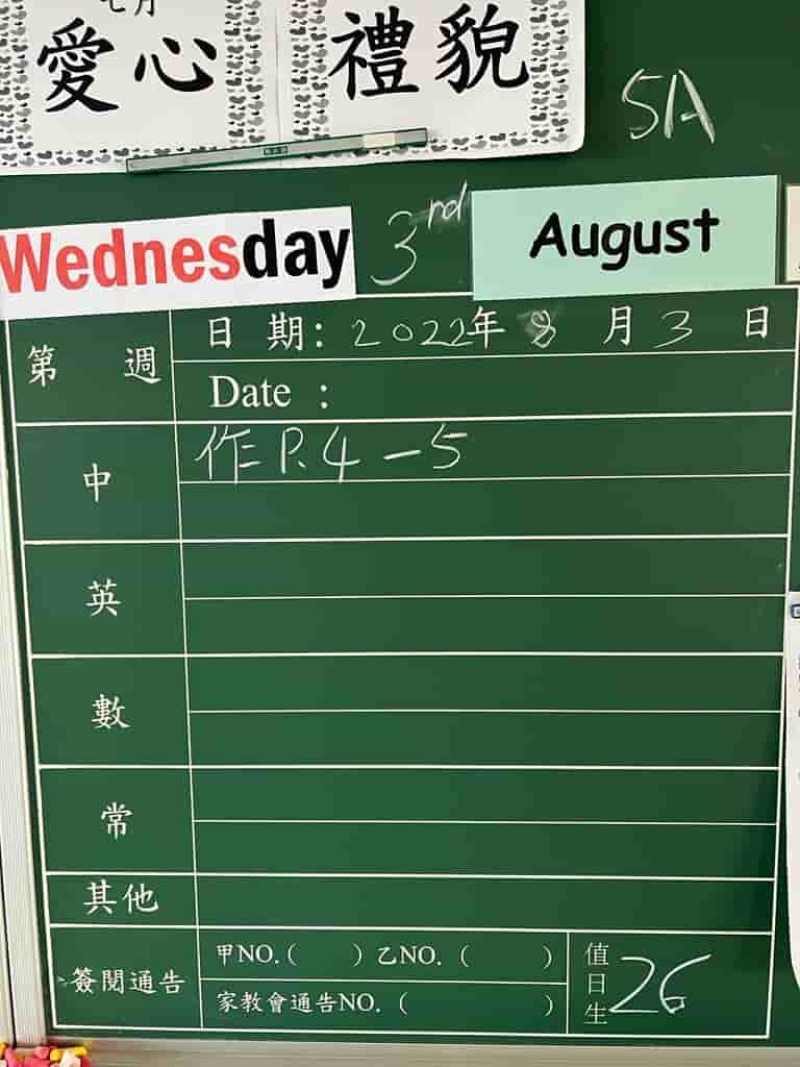 七月
愛心 禮貌
5A
Wednesday 3rd August
第 週
日 期: 2022年 8 月 3 日
Date :
中
作 P.4-5
英
數
常
其他
簽閱通告
甲NO.( ) 乙NO. ( )
家教會通告NO. ( )
值日生 26